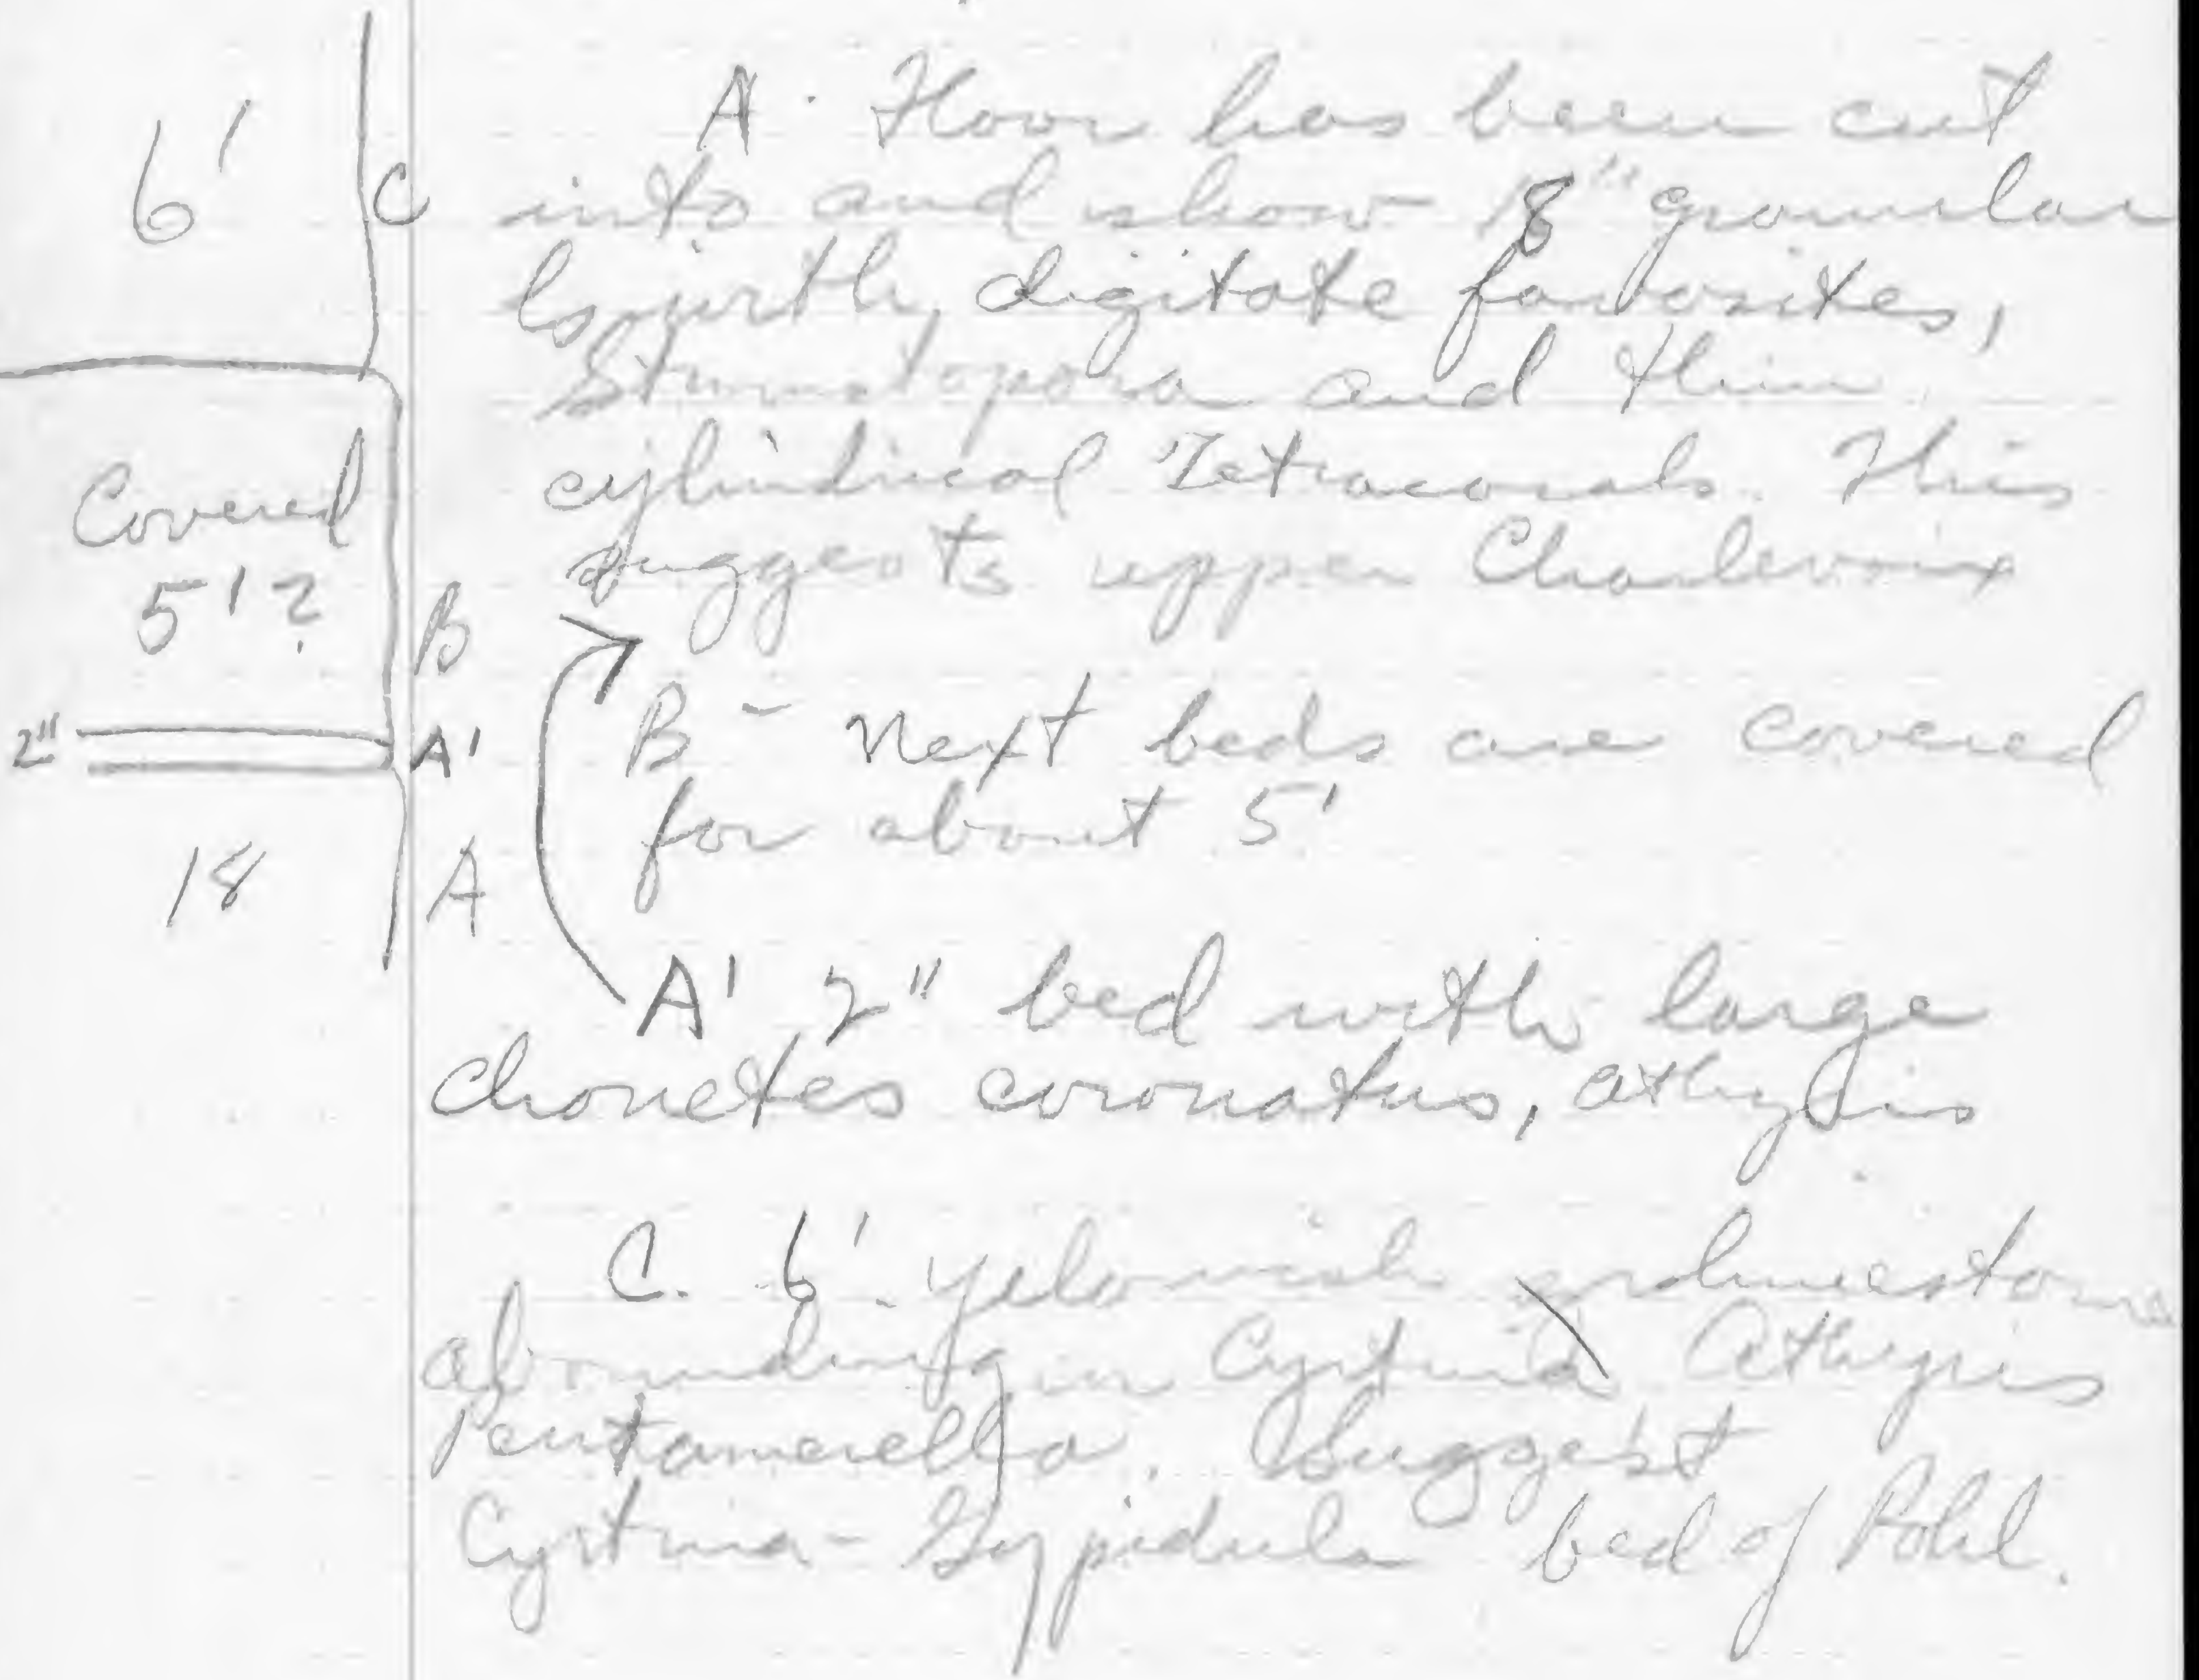 6'
C
Covered
5'?
B
2"
A'
18
A
A. Floor has been cut
into and show 18" granular
ls with digitate favosites,
Stromatopora and thin
cylindrical Tetracorals. This
suggests upper Charlevoix
B - Next beds are covered
for about 5'
A' 2" bed with large
Chonetes coronatus, Athyris
C. 6' yelowish limestone
abounding in Cyrtina Athyris
Pentamerella. Suggest
Cyrtina-Gypidula bed of Pohl.